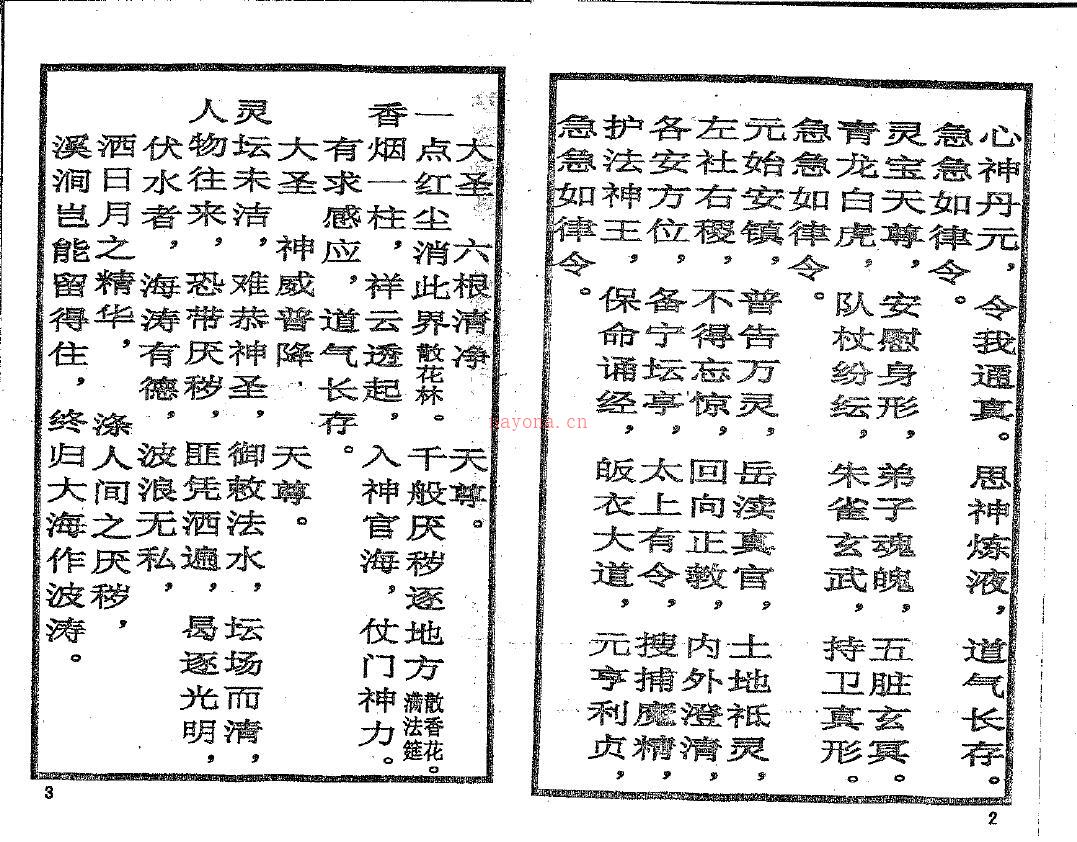 心神丹元，令我通真。思神炼液，道气长存。
急急如律令。
灵宝天尊，安慰身形，弟子魂魄，五脏玄冥。
青龙白虎，队杖纷纭，朱雀玄武，持卫真形。
急急如律令。
元始安镇，普告万灵，岳渎真官，土地祗灵，
左社右稷，不得忘惊，回向正教，内外澄清，
各安方位，备宁坛亭，太上有令，搜捕魔精，
护法神王，保命诵经，皈衣大道，元亨利贞，
急急如律令。
2
大圣 六根清净 天尊。
一点红尘消此界散花林。千般厌秽逐地方散香花。满法筵
香烟一柱，祥云透起，入神官海，仗门神力。
有求感应，道气长存。
大圣 神威普降 天尊。
灵坛未洁，难恭神圣，御敕法水，坛场而清，
人物往来，恐带厌秽，匪凭洒遍，曷逐光明，
伏水者，海涛有德，波浪无私，
洒日月之精华，涤人间之厌秽，
溪涧岂能留得住，终归大海作波涛。
3
nayona.cn